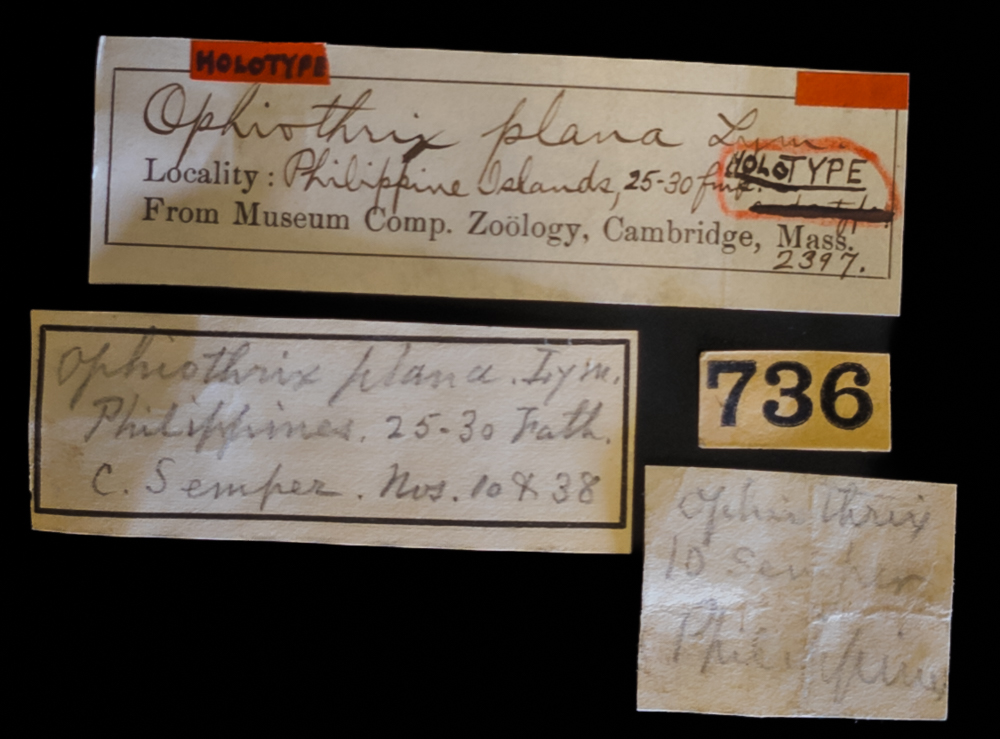 HOLOTYPE
Ophiothrix plana Lym.
Locality: Philippine Islands, 25-30 fms.
HOLOTYPE
From Museum Comp. Zoölogy, Cambridge, Mass.
2397.
Ophiothrix plana. Lym.
Philippines. 25-30 Fath.
C. Semper. Nos. 10 & 38
736
Ophiothrix
10 Semper
Philippines